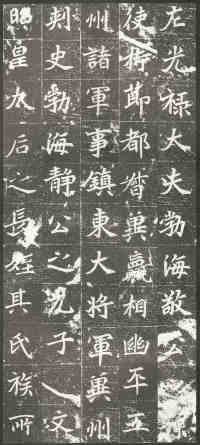 左光祿大夫勃海敬公
使持節都督冀瀛相幽平五
州諸軍事鎮東大將軍冀州
刺史勃海靜公之元子　文
皇太后之長姪其氏族所